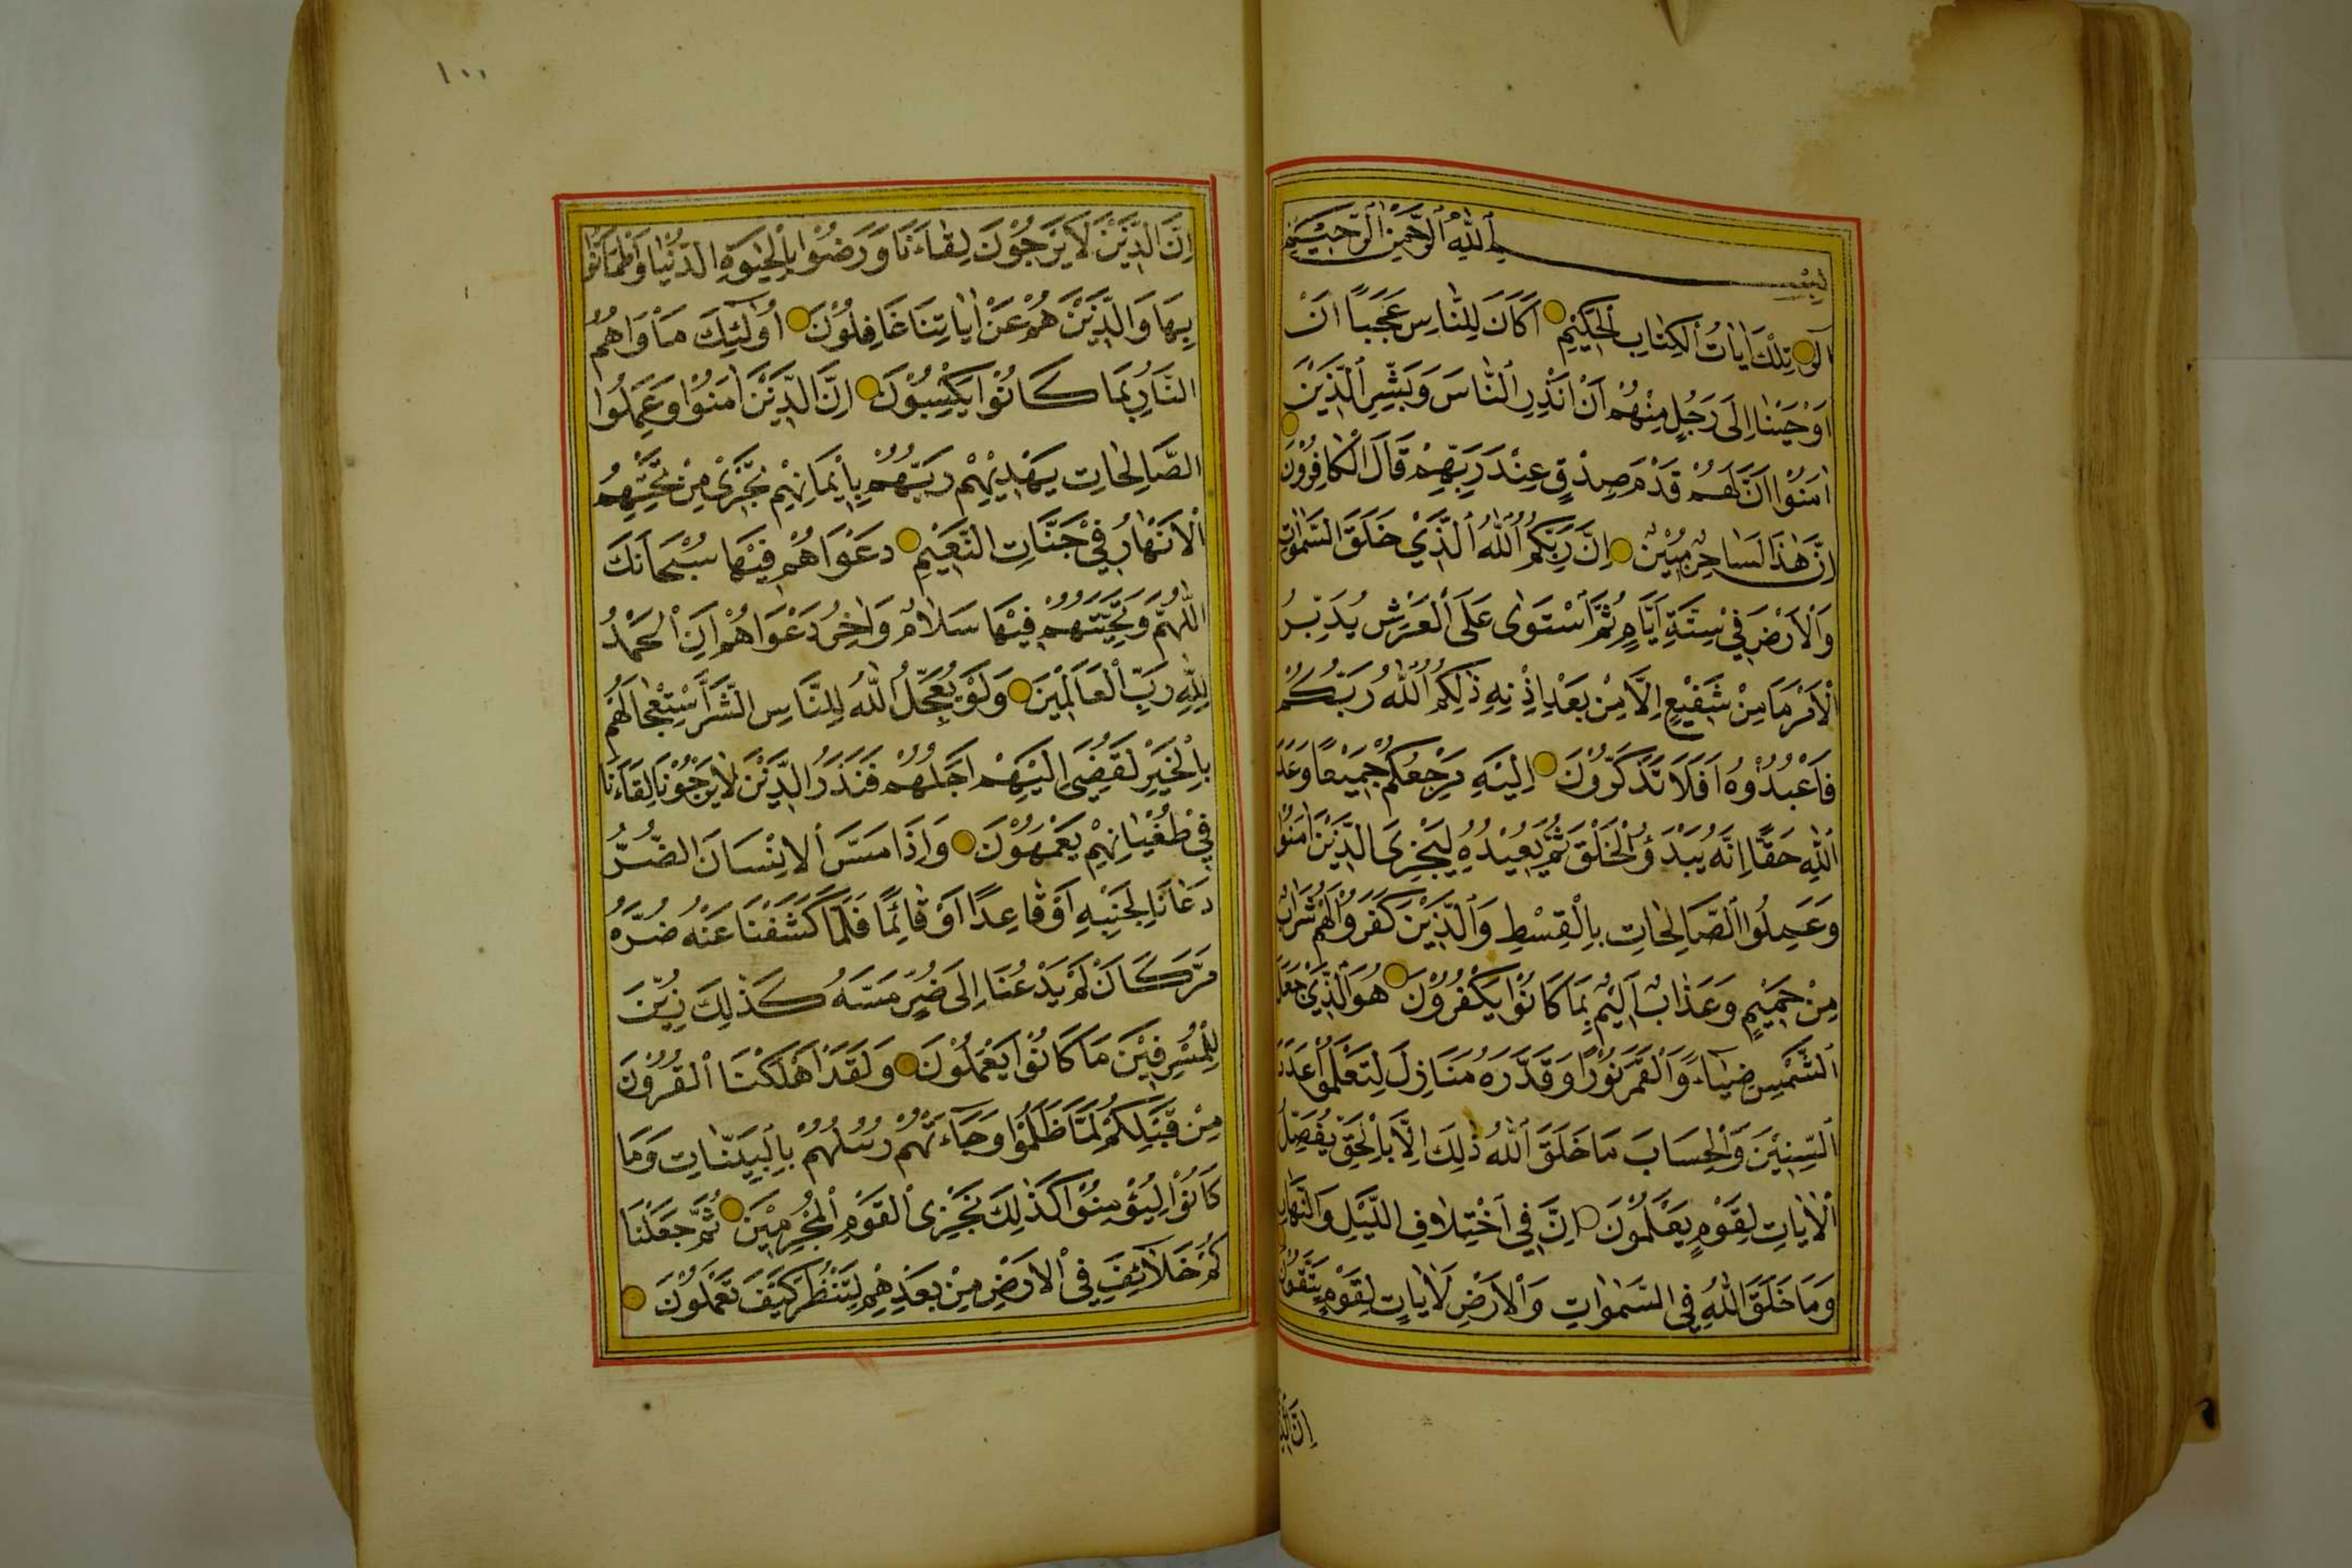 بِسْمِ ٱللّٰهِ ٱلرَّحْمٰنِ ٱلرَّحِيْمِ
الٓرٰ تِلْكَ اٰيَاتُ ٱلْكِتَابِ ٱلْحَكِيْمِ اَكَانَ لِلنَّاسِ عَجَبًا اَنْ
اَوْحَيْنَا اِلٰى رَجُلٍ مِنْهُمْ اَنْ اَنْذِرِ ٱلنَّاسَ وَبَشِّرِ ٱلَّذِيْنَ
اٰمَنُوْا اَنَّ لَهُمْ قَدَمَ صِدْقٍ عِنْدَ رَبِّهِمْ قَالَ ٱلْكَافِرُوْنَ
اِنَّ هٰذَا لَسَاحِرٌ مُبِيْنٌ اِنَّ رَبَّكُمُ ٱللّٰهُ ٱلَّذِيْ خَلَقَ السَّمٰوَاتِ
وَٱلْاَرْضَ فِيْ سِتَّةِ اَيَّامٍ ثُمَّ ٱسْتَوٰى عَلَى ٱلْعَرْشِ يُدَبِّرُ
ٱلْاَمْرَ مَا مِنْ شَفِيْعٍ اِلَّا مِنْ بَعْدِ اِذْنِهِ ذٰلِكُمُ ٱللّٰهُ رَبُّكُمْ
فَاعْبُدُوْهُ اَفَلَا تَذَكَّرُوْنَ اِلَيْهِ مَرْجِعُكُمْ جَمِيْعًا وَعْدَ
ٱللّٰهِ حَقًّا اِنَّهُ يَبْدَؤُ ٱلْخَلْقَ ثُمَّ يُعِيْدُهُ لِيَجْزِىَ الَّذِيْنَ اٰمَنُوْا
وَعَمِلُوا ٱلصَّالِحَاتِ بِالْقِسْطِ وَٱلَّذِيْنَ كَفَرُوْا لَهُمْ شَرَابٌ
مِنْ حَمِيْمٍ وَعَذَابٌ اَلِيْمٌ بِمَا كَانُوْا يَكْفُرُوْنَ هُوَ ٱلَّذِيْ جَعَلَ
ٱلشَّمْسَ ضِيَاءً وَٱلْقَمَرَ نُوْرًا وَقَدَّرَهُ مَنَازِلَ لِتَعْلَمُوْا عَدَدَ
ٱلسِّنِيْنَ وَٱلْحِسَابَ مَا خَلَقَ ٱللّٰهُ ذٰلِكَ اِلَّا بِالْحَقِّ يُفَصِّلُ
ٱلْاٰيَاتِ لِقَوْمٍ يَعْلَمُوْنَ اِنَّ فِي اخْتِلَافِ اللَّيْلِ وَالنَّهَارِ
وَمَا خَلَقَ اللّٰهُ فِي السَّمٰوَاتِ وَٱلْاَرْضِ لَاٰيَاتٍ لِقَوْمٍ يَتَّقُوْنَ
١٠٠
اِنَّ الَّذِيْنَ لَا يَرْجُوْنَ لِقَاءَنَا وَرَضُوْا بِالْحَيٰوةِ الدُّنْيَا وَاطْمَاَنُّوْا
بِهَا وَالَّذِيْنَ هُمْ عَنْ اٰيَاتِنَا غَافِلُوْنَ اُولٰئِكَ مَأْوَاهُمُ
النَّارُ بِمَا كَانُوْا يَكْسِبُوْنَ اِنَّ الَّذِيْنَ اٰمَنُوْا وَعَمِلُوا
الصَّالِحَاتِ يَهْدِيْهِمْ رَبُّهُمْ بِاِيْمَانِهِمْ تَجْرِىْ مِنْ تَحْتِهِمُ
ٱلْاَنْهَارُ فِيْ جَنَّاتِ النَّعِيْمِ دَعْوَاهُمْ فِيْهَا سُبْحَانَكَ
اللّٰهُمَّ وَتَحِيَّتُهُمْ فِيْهَا سَلَامٌ وَاٰخِرُ دَعْوَاهُمْ اَنِ ٱلْحَمْدُ
لِلّٰهِ رَبِّ ٱلْعَالَمِيْنَ وَلَوْ يُعَجِّلُ ٱللّٰهُ لِلنَّاسِ الشَّرَّ اسْتِعْجَالَهُمْ
بِالْخَيْرِ لَقُضِىَ اِلَيْهِمْ اَجَلُهُمْ فَنَذَرُ الَّذِيْنَ لَا يَرْجُوْنَ لِقَاءَنَا
فِيْ طُغْيَانِهِمْ يَعْمَهُوْنَ وَاِذَا مَسَّ ٱلْاِنْسَانَ الضُّرُّ
دَعَانَا لِجَنْبِهِ اَوْ قَاعِدًا اَوْ قَائِمًا فَلَمَّا كَشَفْنَا عَنْهُ ضُرَّهُ
مَرَّ كَاَنْ لَمْ يَدْعُنَا اِلٰى ضُرٍّ مَسَّهُ كَذٰلِكَ زُيِّنَ
لِلْمُسْرِفِيْنَ مَا كَانُوْا يَعْمَلُوْنَ وَلَقَدْ اَهْلَكْنَا ٱلْقُرُوْنَ
مِنْ قَبْلِكُمْ لَمَّا ظَلَمُوْا وَجَاءَتْهُمْ رُسُلُهُمْ بِالْبَيِّنَاتِ وَمَا
كَانُوْا لِيُؤْمِنُوْا كَذٰلِكَ نَجْزِى ٱلْقَوْمَ ٱلْمُجْرِمِيْنَ ثُمَّ جَعَلْنَا
كُمْ خَلَائِفَ فِي ٱلْاَرْضِ مِنْ بَعْدِهِمْ لِنَنْظُرَ كَيْفَ تَعْمَلُوْنَ